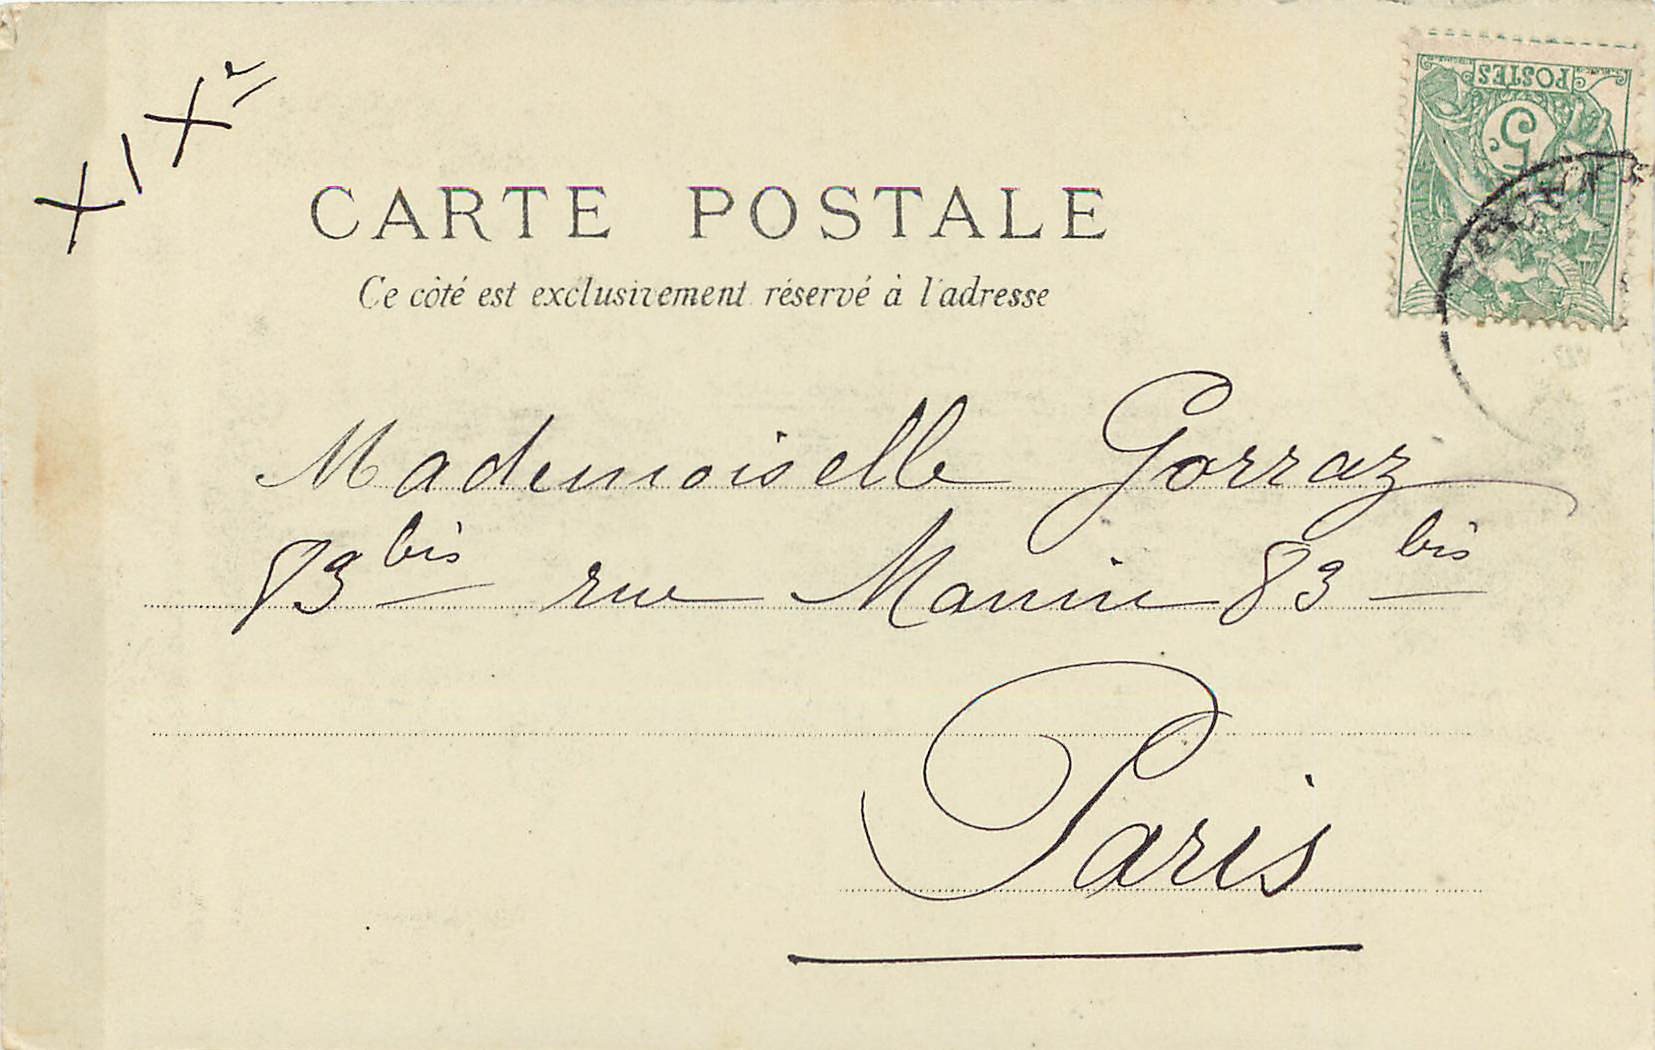 XIXe
CARTE POSTALE
Ce côté est exclusivement réservé à l'adresse
POSTES
5c
Mademoiselle Gorraz
83 bis rue Manin 83 bis
Paris